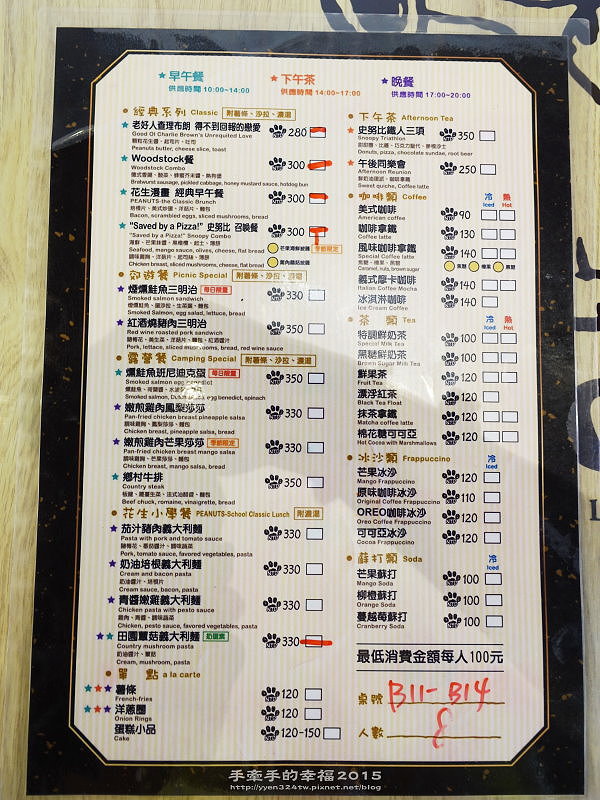 ★早午餐
供應時間 10:00~14:00
★下午茶
供應時間 14:00~17:00
★晚餐
供應時間 17:00~20:00
經典系列 Classic 附薯條、沙拉、濃湯
★老好人查理布朗 得不到回報的戀愛 280
Good Ol Charlie Brown's Unrequited Love
顆粒花生醬、起司片、吐司
Peanuts butter, cheese slice, toast
★Woodstock餐 300
Woodstock Combo
德式香腸、酸菜、蜂蜜芥末醬、熱狗堡
Bratwurst sausage, pickled cabbage, honey mustard sauce, hotdog bun
★花生漫畫 經典早午餐 300
PEANUTS-the Classic Brunch
培根片、美式炒蛋、洋菇片、麵包
Bacon, scrambled eggs, sliced mushrooms, bread
★"Saved by a Pizza!" 史努比 召喚餐 300
"Saved by a Pizza!" Snoopy Combo
Seafood, mango sauce, olives, cheese, flat bread 季節限定
Chicken breast, sliced mushrooms, cheese, flat bread
郊遊餐 Picnic Special 附薯條、沙拉、濃湯
★煙燻鮭魚三明治 每日限量 330
Smoked salmon sandwich
煙燻鮭魚、蛋沙拉、生菜葉、麵包
Smoked Salmon, egg salad, lettuce, bread
★紅酒燒豬肉三明治 350
Red wine roasted pork sandwich
Pork, lettuce, sliced mushrooms, bread, red wine sauce
露營餐 Camping Special 附薯條、沙拉、濃湯
★燻鮭魚班尼迪克蛋 每日限量 350
Smoked salmon egg benedict
★嫩煎雞肉鳳梨莎莎 330
Pan-fried chicken breast pineapple salsa
調味雞胸、鳳梨莎莎、麵包
Chicken breast, pineapple salsa, bread
★嫩煎雞肉芒果莎莎 季節限定 330
Pan-fried chicken breast mango salsa
調味雞胸、芒果莎莎、麵包
Chicken breast, mango salsa, bread
★鄉村牛排 350
Country steak
Beef chuck, romaine, vinaigrette, bread
花生小學餐 PEANUTS-School Classic Lunch 附濃湯
★茄汁豬肉義大利麵 330
Pasta with pork and tomato sauce
Pork, tomato sauce, favored vegetables, pasta
★奶油培根義大利麵 330
Cream and bacon pasta
奶油醬汁、培根片
Cream sauce, bacon, pasta
★青醬嫩雞義大利麵 330
Chicken pasta with pesto sauce
雞肉、青醬、調味蔬菜
Chicken, pesto sauce, favored vegetables, pasta
★★田園蕈菇義大利麵 奶蛋素 330
Country mushroom pasta
奶油醬汁、蕈菇
Cream, mushroom, pasta
單 點 a la carte
★★★薯條 120
French-fries
★★★洋蔥圈 120
Onion Rings
蛋糕小品 120-150
Cake
下午茶 Afternoon Tea
★史努比鐵人三項 350
Snoopy Triathlon
Donuts, pizza, chocolate sundae, root beer
★午後同樂會 250
Afternoon Reunion
Sweet quiche, Coffee latte
咖啡類 Coffee 冷 Iced 熱 Hot
美式咖啡 90
American coffee
咖啡拿鐵 130
Coffee latte
風味咖啡拿鐵 140
Special Coffee latte
焦糖、榛果、黑糖
Caramel, nuts, brown sugar 焦糖 榛果 黑糖
義式摩卡咖啡 140
Italian Coffee Mocha
冰淇淋咖啡 140
Ice Cream Coffee
茶 類 Tea 冷 Iced 熱 Hot
特調鮮奶茶 100
Special Milk Tea
黑糖鮮奶茶 100
Brown Sugar Milk Tea
鮮果茶 120
Fruit Tea
漂浮紅茶 120
Black Tea Float
抹茶拿鐵 120
Matcha coffee latte
棉花糖可可亞 120
Hot Cocoa with Marshmallows
冰沙類 Frappuccino 冷 Iced
芒果冰沙 120
Mango Frappuccino
原味咖啡冰沙 110
Original Coffee Frappuccino
OREO咖啡冰沙 120
Oreo Coffee Frappuccino
可可亞冰沙 120
Cocoa Frappuccino
蘇打類 Soda 冷 Iced
芒果蘇打 100
Mango Soda
柳橙蘇打 100
Orange Soda
蔓越莓蘇打 100
Cranberry Soda
最低消費金額每人100元
桌號 B11-B14
人數 8
手牽手的幸福2015
http://yyen324tw.pixnet.net/blog